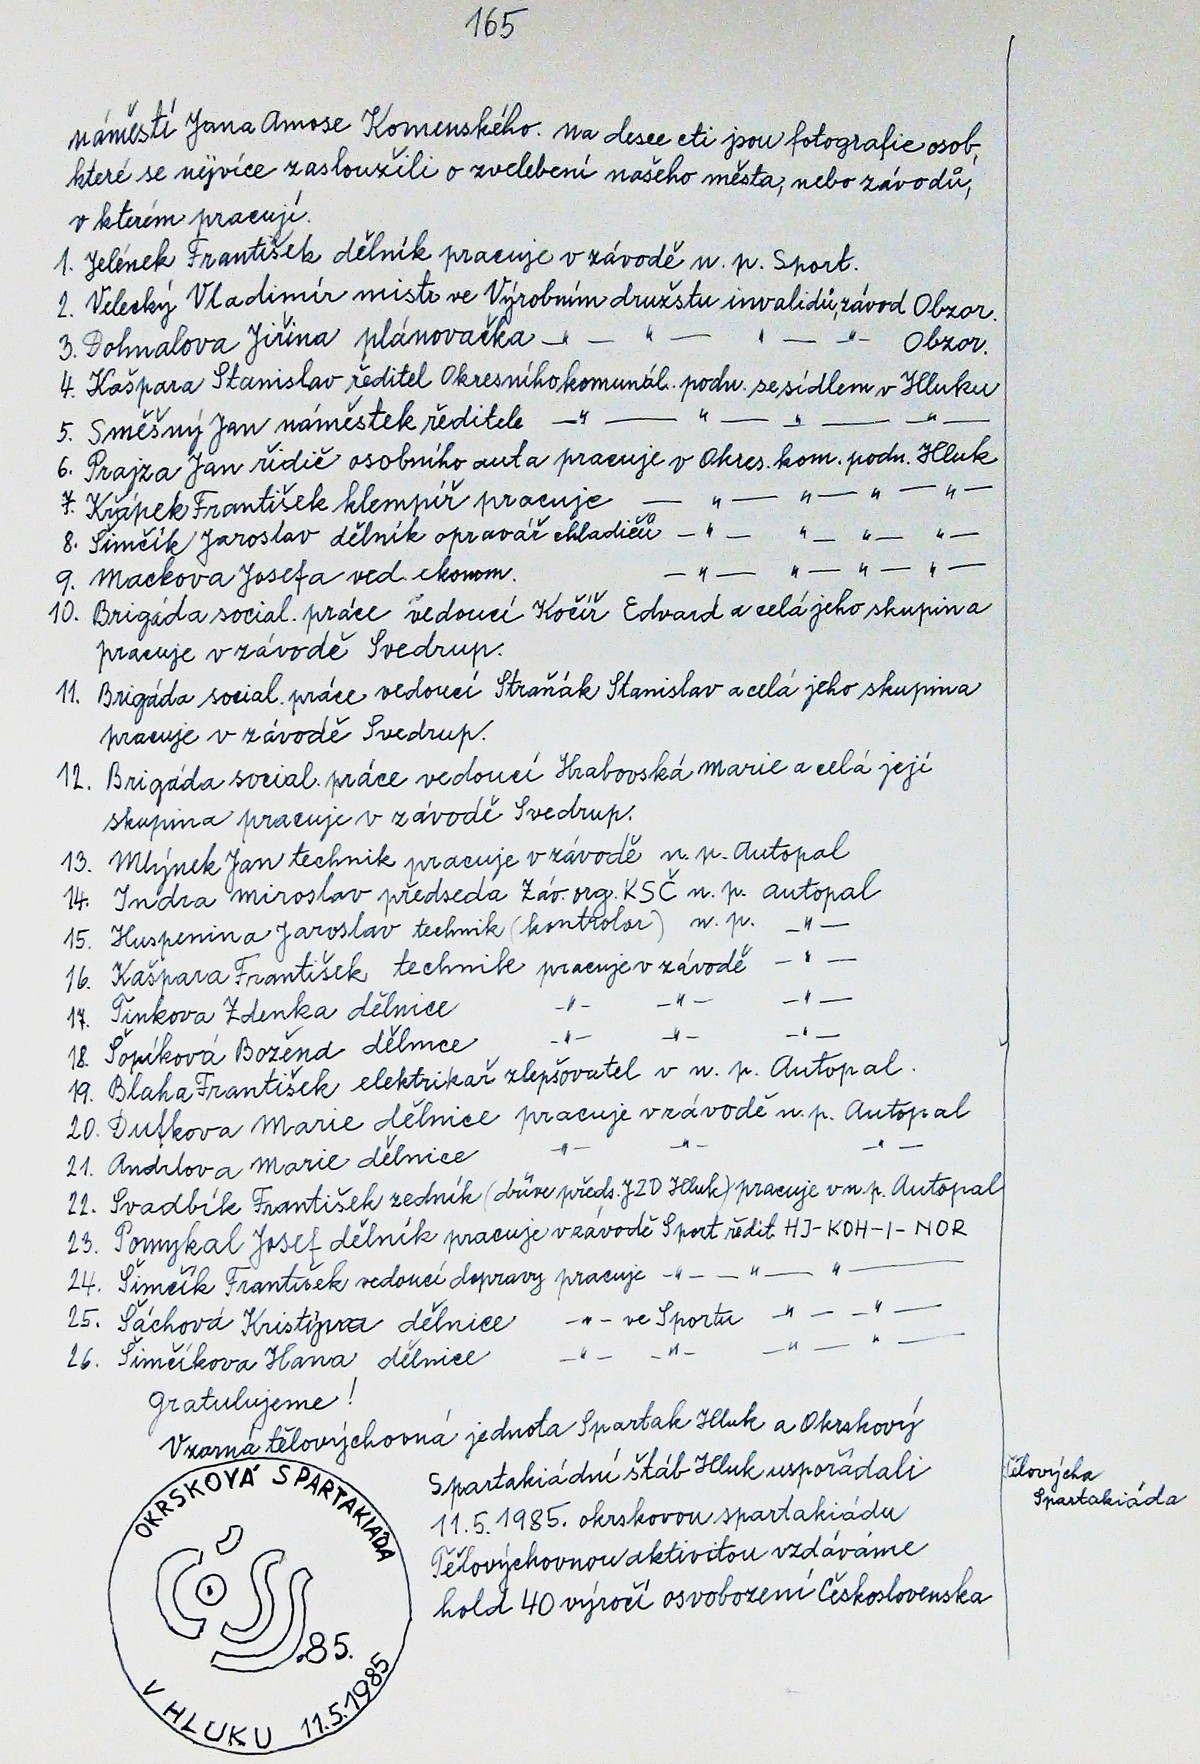 165
náměstí Jana Amose Komenského. Na desce cti jsou fotografie osob,
které se nejvíce zasloužili o zvelebení našeho města, nebo závodů,
v kterém pracují.
1. Jelének František dělník pracuje v závodě n. p. Sport.
2. Velecký Vladimír mistr ve Výrobním družstu invalidů, závod Obzor.
3. Dohnalova Jiřina plánovačka –"– " – " – "– Obzor.
4. Kašpara Stanislav ředitel Okresního komunál. podn. se sídlem v Hluku
5. Směšný Jan náměstek ředitele –"– " – " – "–
6. Prajza Jan řidič osobního auta pracuje v Okres. kom. podn. Hluk
7. Křápek František klempíř pracuje – "– "– " – "–
8. Šimčík Jaroslav dělník opravář chladičů –"– "– "– "–
9. Mackova Josefa ved. ekonom. –"– "– "– "–
10. Brigáda social. práce vedoucí Kočíř Edvard a celá jeho skupina
pracuje v závodě Svedrup.
11. Brigáda social. práce vedoucí Straňák Stanislav a celá jeho skupina
pracuje v závodě Svedrup.
12. Brigáda social. práce vedoucí Hrabovská Marie a celá její
skupina pracuje v závodě Svedrup.
13. Mlýnek Jan technik pracuje v závodě n. p. Autopal
14. Indra Miroslav předseda Záv. org. KSČ n. p. autopal
15. Huspenina Jaroslav technik (kontrolor) n. p. –"–
16. Kašpara František technik pracuje v závodě –"–
17. Tinkova Zdenka dělnice –"– –"– –"–
18. Šopíková Božend dělnice –"– –"– –"–
19. Blaha František elektrikař zlepšovatel v n. p. Autopal.
20. Dufkova Marie dělnice pracuje v závodě n. p. Autopal
21. Andrlova Marie dělnice –"– –"– –"–
22. Svadbík František zedník (dříve předs. JZD Hluk) pracuje v n. p. Autopal
23. Pomykal Josef dělník pracuje v závodě Sport ředit HJ-KOH-I-NOR
24. Šimčík František vedoucí dopravy pracuje –"– –"– "–
25. Šáchová Kristýna dělnice –"– ve Sportu "– –"–
26. Šimčíkova Hana dělnice –"– –"– –"– "–
Gratulujeme!
Vzorná tělovýchovná jednota Spartak Hluk a Okrskový
Spartakiádní štáb Hluk uspořádali
11.5.1985. okrskovou spartakiádu
Tělovýchovnou aktivitou vzdáváme
hold 40 výročí osvobození Československa
Tělovýcha
Spartakiáda
OKRSKOVÁ SPARTAKIÁDA
ČSS
85.
V HLUKU 11.5.1985